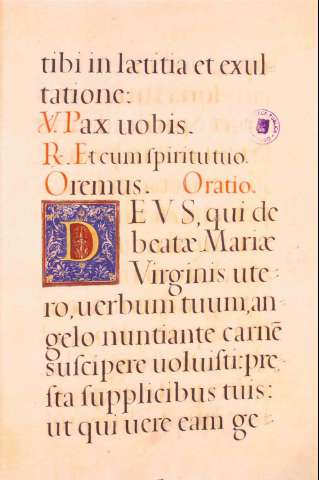 tibi in lætitia et exul-
tatione:
℣. Pax uobis.
R. Et cum ſpiritu tuo.
Oremus. Oratio.
DEVS, qui de
beatæ Mariæ
Virginis ute-
ro, uerbum tuum, an-
gelo nuntiante carnē
suſcipere uoluiſti: prę
ſta ſupplicibus tuis:
ut qui uere eam ge-